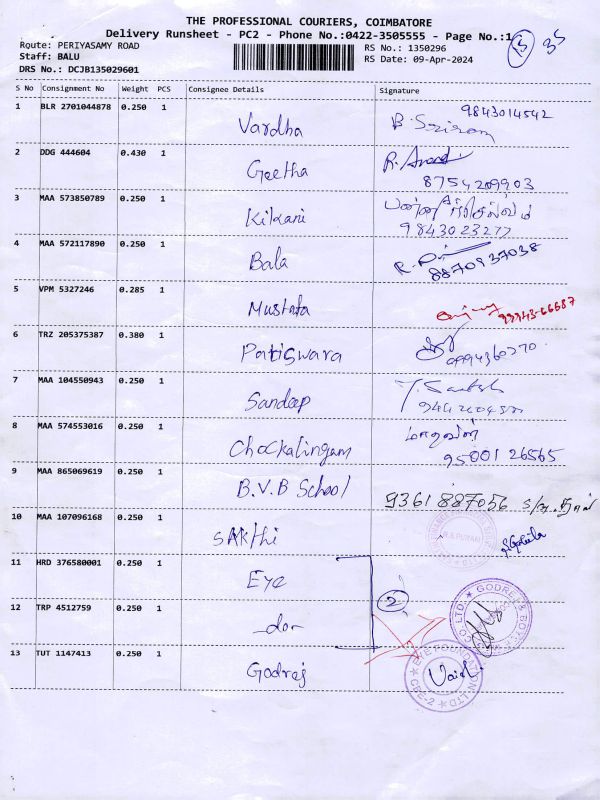 THE PROFESSIONAL COURIERS, COIMBATORE
Delivery Runsheet - PC2 - Phone No.:0422-3505555 - Page No.:1
13 35
Route: PERIYASAMY ROAD
RS No.: 1350296
Staff: BALU
RS Date: 09-Apr-2024
DRS No.: DCJB135029601
S No Consignment No Weight PCS Consignee Details Signature
1 BLR 2701044878 0.250 1 Vardha 9843014542
2 DDG 444604 0.430 1 Geetha R. Anand
8754209903
3 MAA 573850789 0.250 1 Kikani
9843023277
4 MAA 572117890 0.250 1 Bala 8870937038
5 VPM 5327246 0.285 1 Mustafa 99943-66687
6 TRZ 205375387 0.380 1 Patiswara 09994360270
7 MAA 104550943 0.250 1 Sandeep
8 MAA 574553016 0.250 1 Chockalingam
95001 26565
9 MAA 865069619 0.250 1 B.V.B School 9361887056
10 MAA 107096168 0.250 1 SAKthi
R.S.PURAM
11 HRD 376580001 0.250 1 Eye
2
12 TRP 4512759 0.250 1 -do-
GODREJ & BOYCE
CO. LTD.
13 TUT 1147413 0.250 1 Godrej
EYE FOUNDATION LTD
CBE-2